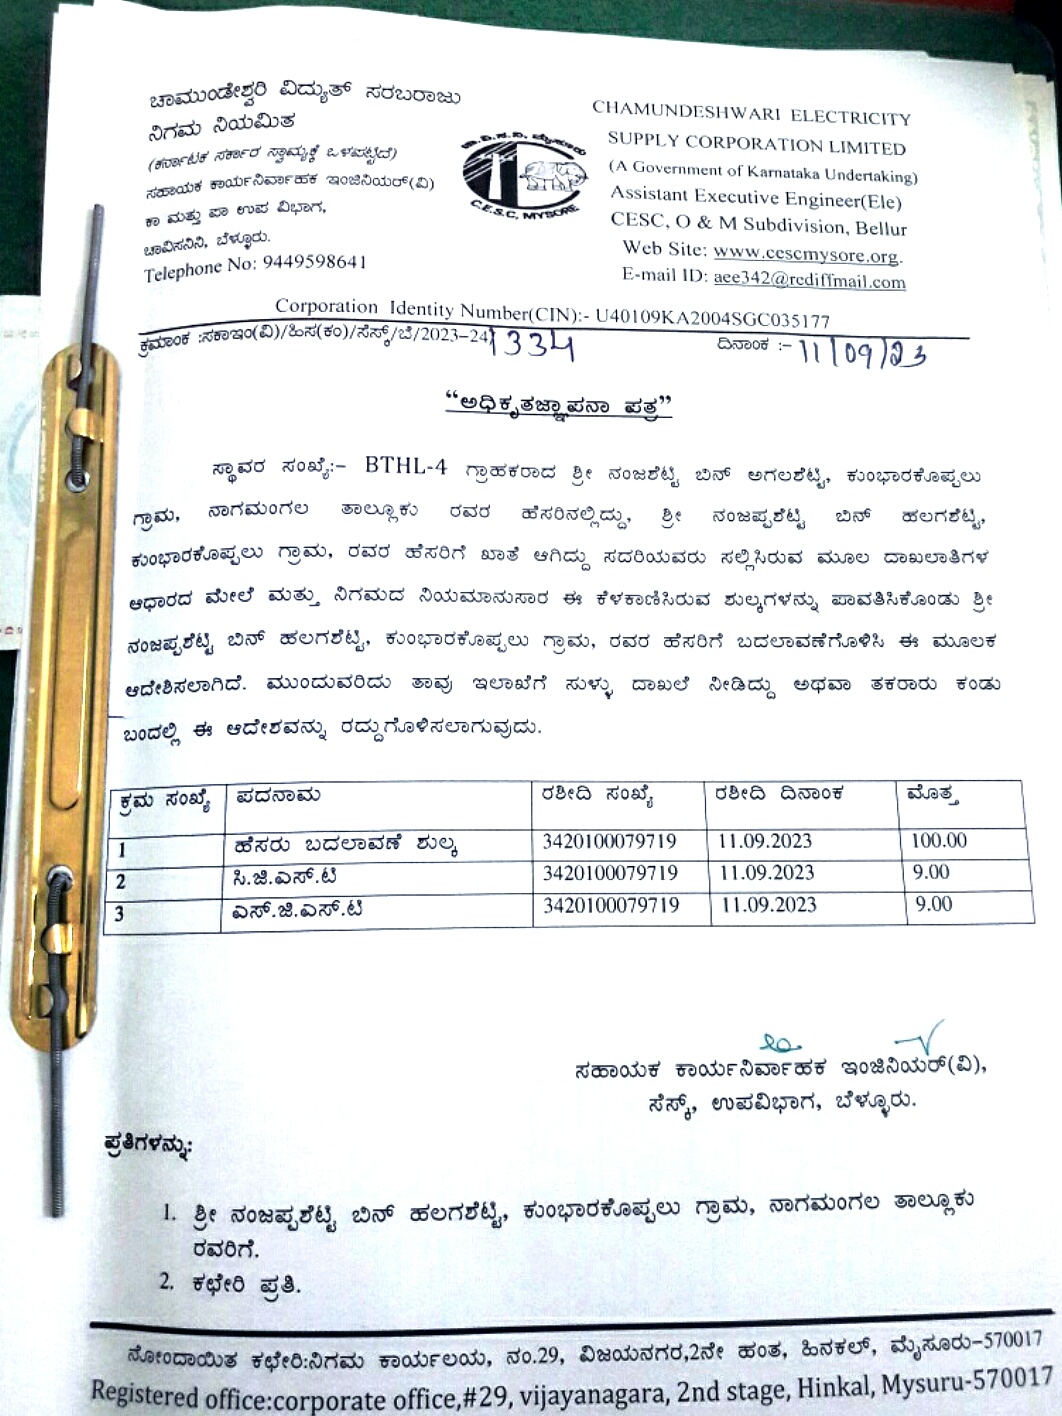 ಚಾಮುಂಡೇಶ್ವರಿ ವಿದ್ಯುತ್ ಸರಬರಾಜು
ನಿಗಮ ನಿಯಮಿತ
(ಕರ್ನಾಟಕ ಸರ್ಕಾರ ಸ್ವಾಮ್ಯಕ್ಕೆ ಒಳಪಟ್ಟಿದೆ)
ಸಹಾಯಕ ಕಾರ್ಯನಿರ್ವಾಹಕ ಇಂಜಿನಿಯರ್(ವಿ)
ಕಾ ಮತ್ತು ಪಾ ಉಪ ವಿಭಾಗ,
ಚಾವಿಸನಿನಿ, ಬೆಳ್ಳೂರು.
Telephone No: 9449598641
ಚಾ.ವಿ.ಸ.ನಿ. ಮೈಸೂರು
C.E.S.C, MYSORE
CHAMUNDESHWARI ELECTRICITY
SUPPLY CORPORATION LIMITED
(A Government of Karnataka Undertaking)
Assistant Executive Engineer(Ele)
CESC, O & M Subdivision, Bellur
Web Site: www.cescmysore.org.
E-mail ID: aee342@rediffmail.com
Corporation Identity Number(CIN):- U40109KA2004SGC035177
ಕ್ರಮಾಂಕ :ಸಕಾಇಂ(ವಿ)/ಹಿಸ(ಕಂ)/ಸೆಸ್ಕ್/ಬೆ/2023-24/1334 ದಿನಾಂಕ :- 11/09/23
“ಅಧಿಕೃತಜ್ಞಾಪನಾ ಪತ್ರ”
ಸ್ಥಾವರ ಸಂಖ್ಯೆ:- BTHL-4 ಗ್ರಾಹಕರಾದ ಶ್ರೀ ನಂಜಶೆಟ್ಟಿ ಬಿನ್ ಅಗಲಶೆಟ್ಟಿ, ಕುಂಭಾರಕೊಪ್ಪಲು
ಗ್ರಾಮ, ನಾಗಮಂಗಲ ತಾಲ್ಲೂಕು ರವರ ಹೆಸರಿನಲ್ಲಿದ್ದು, ಶ್ರೀ ನಂಜಪ್ಪಶೆಟ್ಟಿ ಬಿನ್ ಹಲಗಶೆಟ್ಟಿ,
ಕುಂಭಾರಕೊಪ್ಪಲು ಗ್ರಾಮ, ರವರ ಹೆಸರಿಗೆ ಖಾತೆ ಆಗಿದ್ದು ಸದರಿಯವರು ಸಲ್ಲಿಸಿರುವ ಮೂಲ ದಾಖಲಾತಿಗಳ
ಆಧಾರದ ಮೇಲೆ ಮತ್ತು ನಿಗಮದ ನಿಯಮಾನುಸಾರ ಈ ಕೆಳಕಾಣಿಸಿರುವ ಶುಲ್ಕಗಳನ್ನು ಪಾವತಿಸಿಕೊಂಡು ಶ್ರೀ
ನಂಜಪ್ಪಶೆಟ್ಟಿ ಬಿನ್ ಹಲಗಶೆಟ್ಟಿ, ಕುಂಭಾರಕೊಪ್ಪಲು ಗ್ರಾಮ, ರವರ ಹೆಸರಿಗೆ ಬದಲಾವಣೆಗೊಳಿಸಿ ಈ ಮೂಲಕ
ಆದೇಶಿಸಲಾಗಿದೆ. ಮುಂದುವರಿದು ತಾವು ಇಲಾಖೆಗೆ ಸುಳ್ಳು ದಾಖಲೆ ನೀಡಿದ್ದು ಅಥವಾ ತಕರಾರು ಕಂಡು
ಬಂದಲ್ಲಿ ಈ ಆದೇಶವನ್ನು ರದ್ದುಗೊಳಿಸಲಾಗುವುದು.
ಕ್ರಮ ಸಂಖ್ಯೆ ಪದನಾಮ ರಶೀದಿ ಸಂಖ್ಯೆ ರಶೀದಿ ದಿನಾಂಕ ಮೊತ್ತ
1 ಹೆಸರು ಬದಲಾವಣೆ ಶುಲ್ಕ 3420100079719 11.09.2023 100.00
2 ಸಿ.ಜಿ.ಎಸ್.ಟಿ 3420100079719 11.09.2023 9.00
3 ಎಸ್.ಜಿ.ಎಸ್.ಟಿ 3420100079719 11.09.2023 9.00
ಸಹಾಯಕ ಕಾರ್ಯನಿರ್ವಾಹಕ ಇಂಜಿನಿಯರ್(ವಿ),
ಸೆಸ್ಕ್, ಉಪವಿಭಾಗ, ಬೆಳ್ಳೂರು.
ಪ್ರತಿಗಳನ್ನು:
1. ಶ್ರೀ ನಂಜಪ್ಪಶೆಟ್ಟಿ ಬಿನ್ ಹಲಗಶೆಟ್ಟಿ, ಕುಂಭಾರಕೊಪ್ಪಲು ಗ್ರಾಮ, ನಾಗಮಂಗಲ ತಾಲ್ಲೂಕು
ರವರಿಗೆ.
2. ಕಛೇರಿ ಪ್ರತಿ.
ನೋಂದಾಯಿತ ಕಛೇರಿ:ನಿಗಮ ಕಾರ್ಯಲಯ, ನಂ.29, ವಿಜಯನಗರ,2ನೇ ಹಂತ, ಹಿನಕಲ್, ಮೈಸೂರು-570017
Registered office:corporate office,#29, vijayanagara, 2nd stage, Hinkal, Mysuru-570017